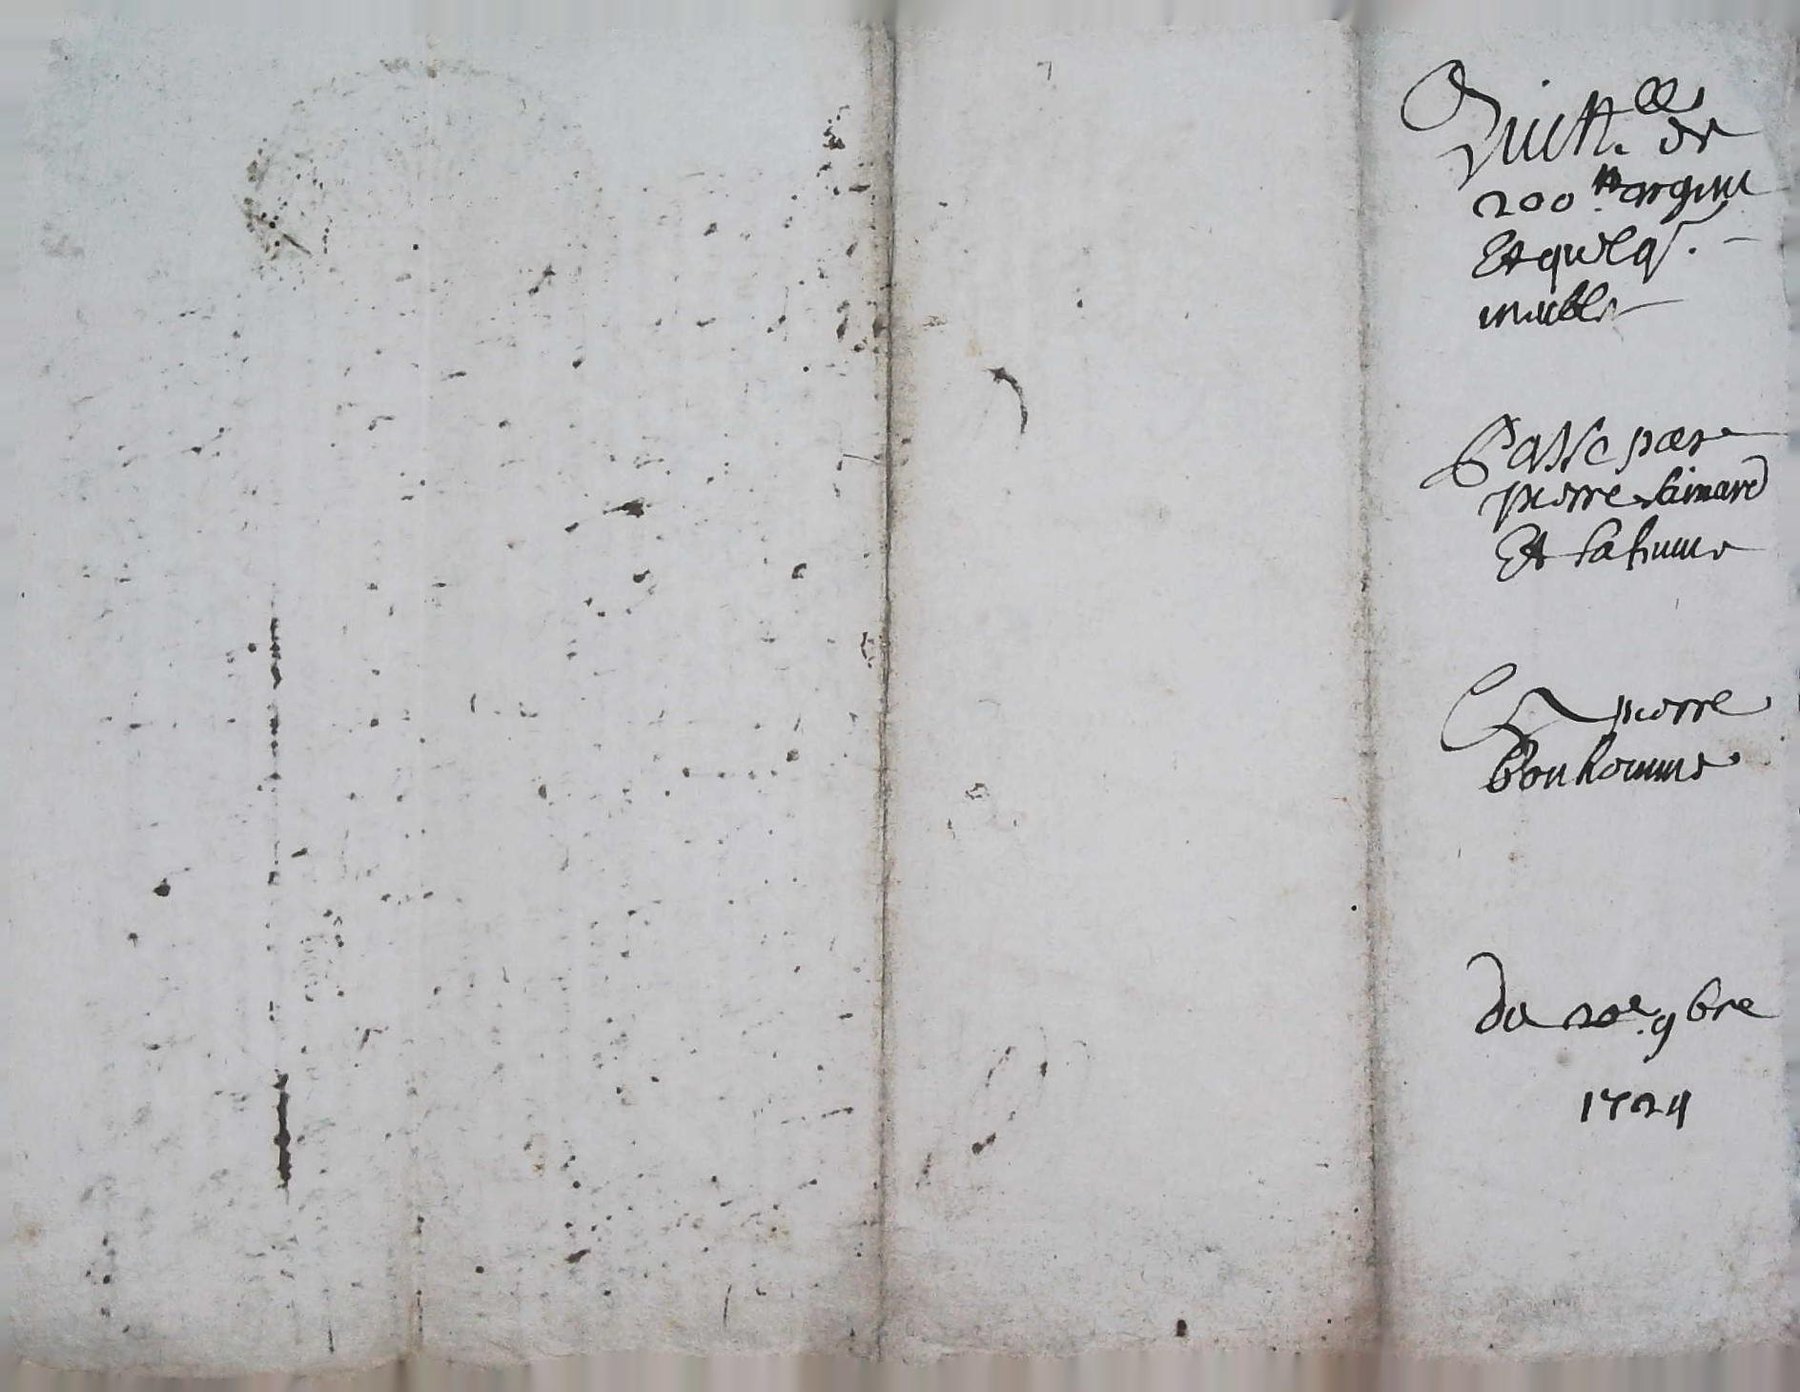 Quitt.ce de
200 # argent
Et quelq.
meubles
Passe par
pierre simard
Et sa femme
A pierre
bonhomme
du 20e 9bre
1724